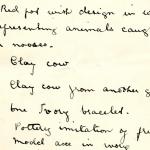 Red pot with design in
representing animals caug
nooses.
Clay cow
Clay cow from another g
one Ivory bracelet.
Pottery imitation of
model axe in